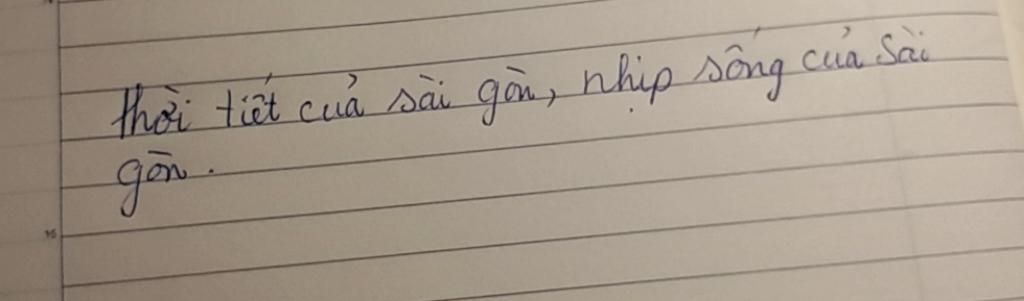 thời tiết của sài gòn, nhịp sống của sài
gòn.